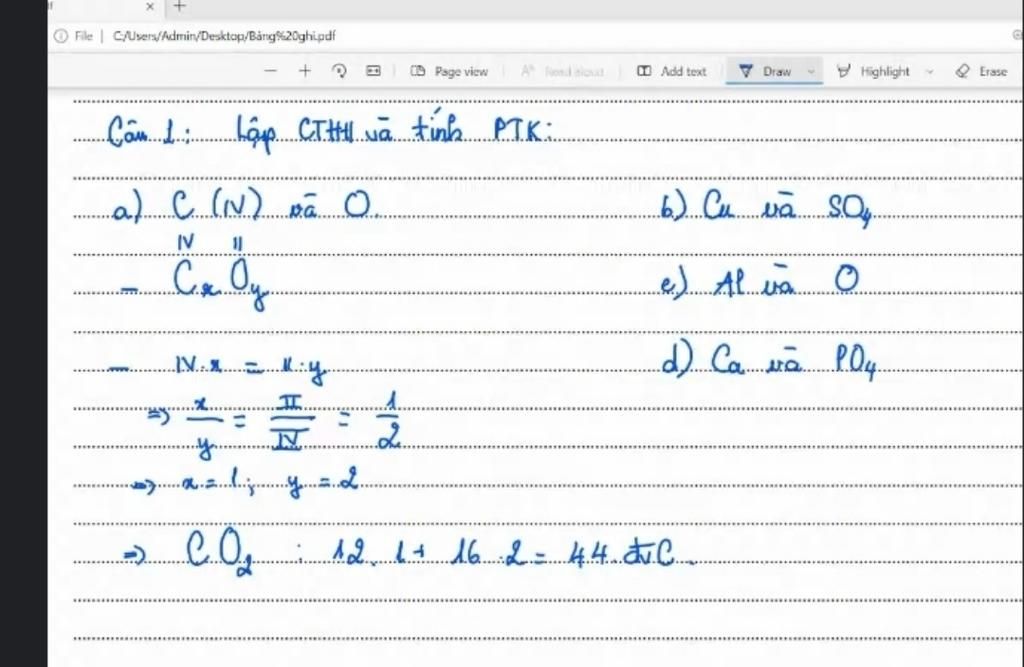 File | C:/Users/Admin/Desktop/Bảng%20ghi.pdf
Page view Read aloud Add text Draw Highlight Erase
Câu 1: Lập CTHH và tính PTK:
a) C (IV) và O. b) Cu và SO₄
IV II
- CₓOᵧ e) Al và O
- IV.x = II.y d) Ca và PO₄
=> x/y = II/IV = 1/2
=> x = 1; y = 2
=> CO₂ : 12.1 + 16.2 = 44 đvC.